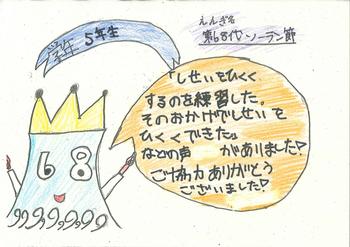 学年 5年生
えんぎ名
第68代ソーラン節
「しせいをひくく
するのを練習した。
そのおかげでしせいを
ひくくできた」
などの声 がありました!
ご協力ありがとう
ございました!
68